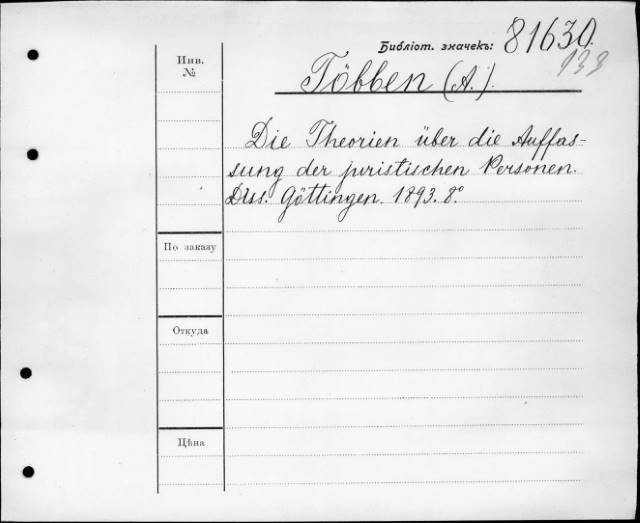 Инв.
№
Библіот. значекъ: 81630.
133
Többen (A.).
Die Theorien über die Auffas-
sung der juristischen Personen.
Diss. Göttingen. 1893. 8°.
По заказу
Откуда
Цѣна